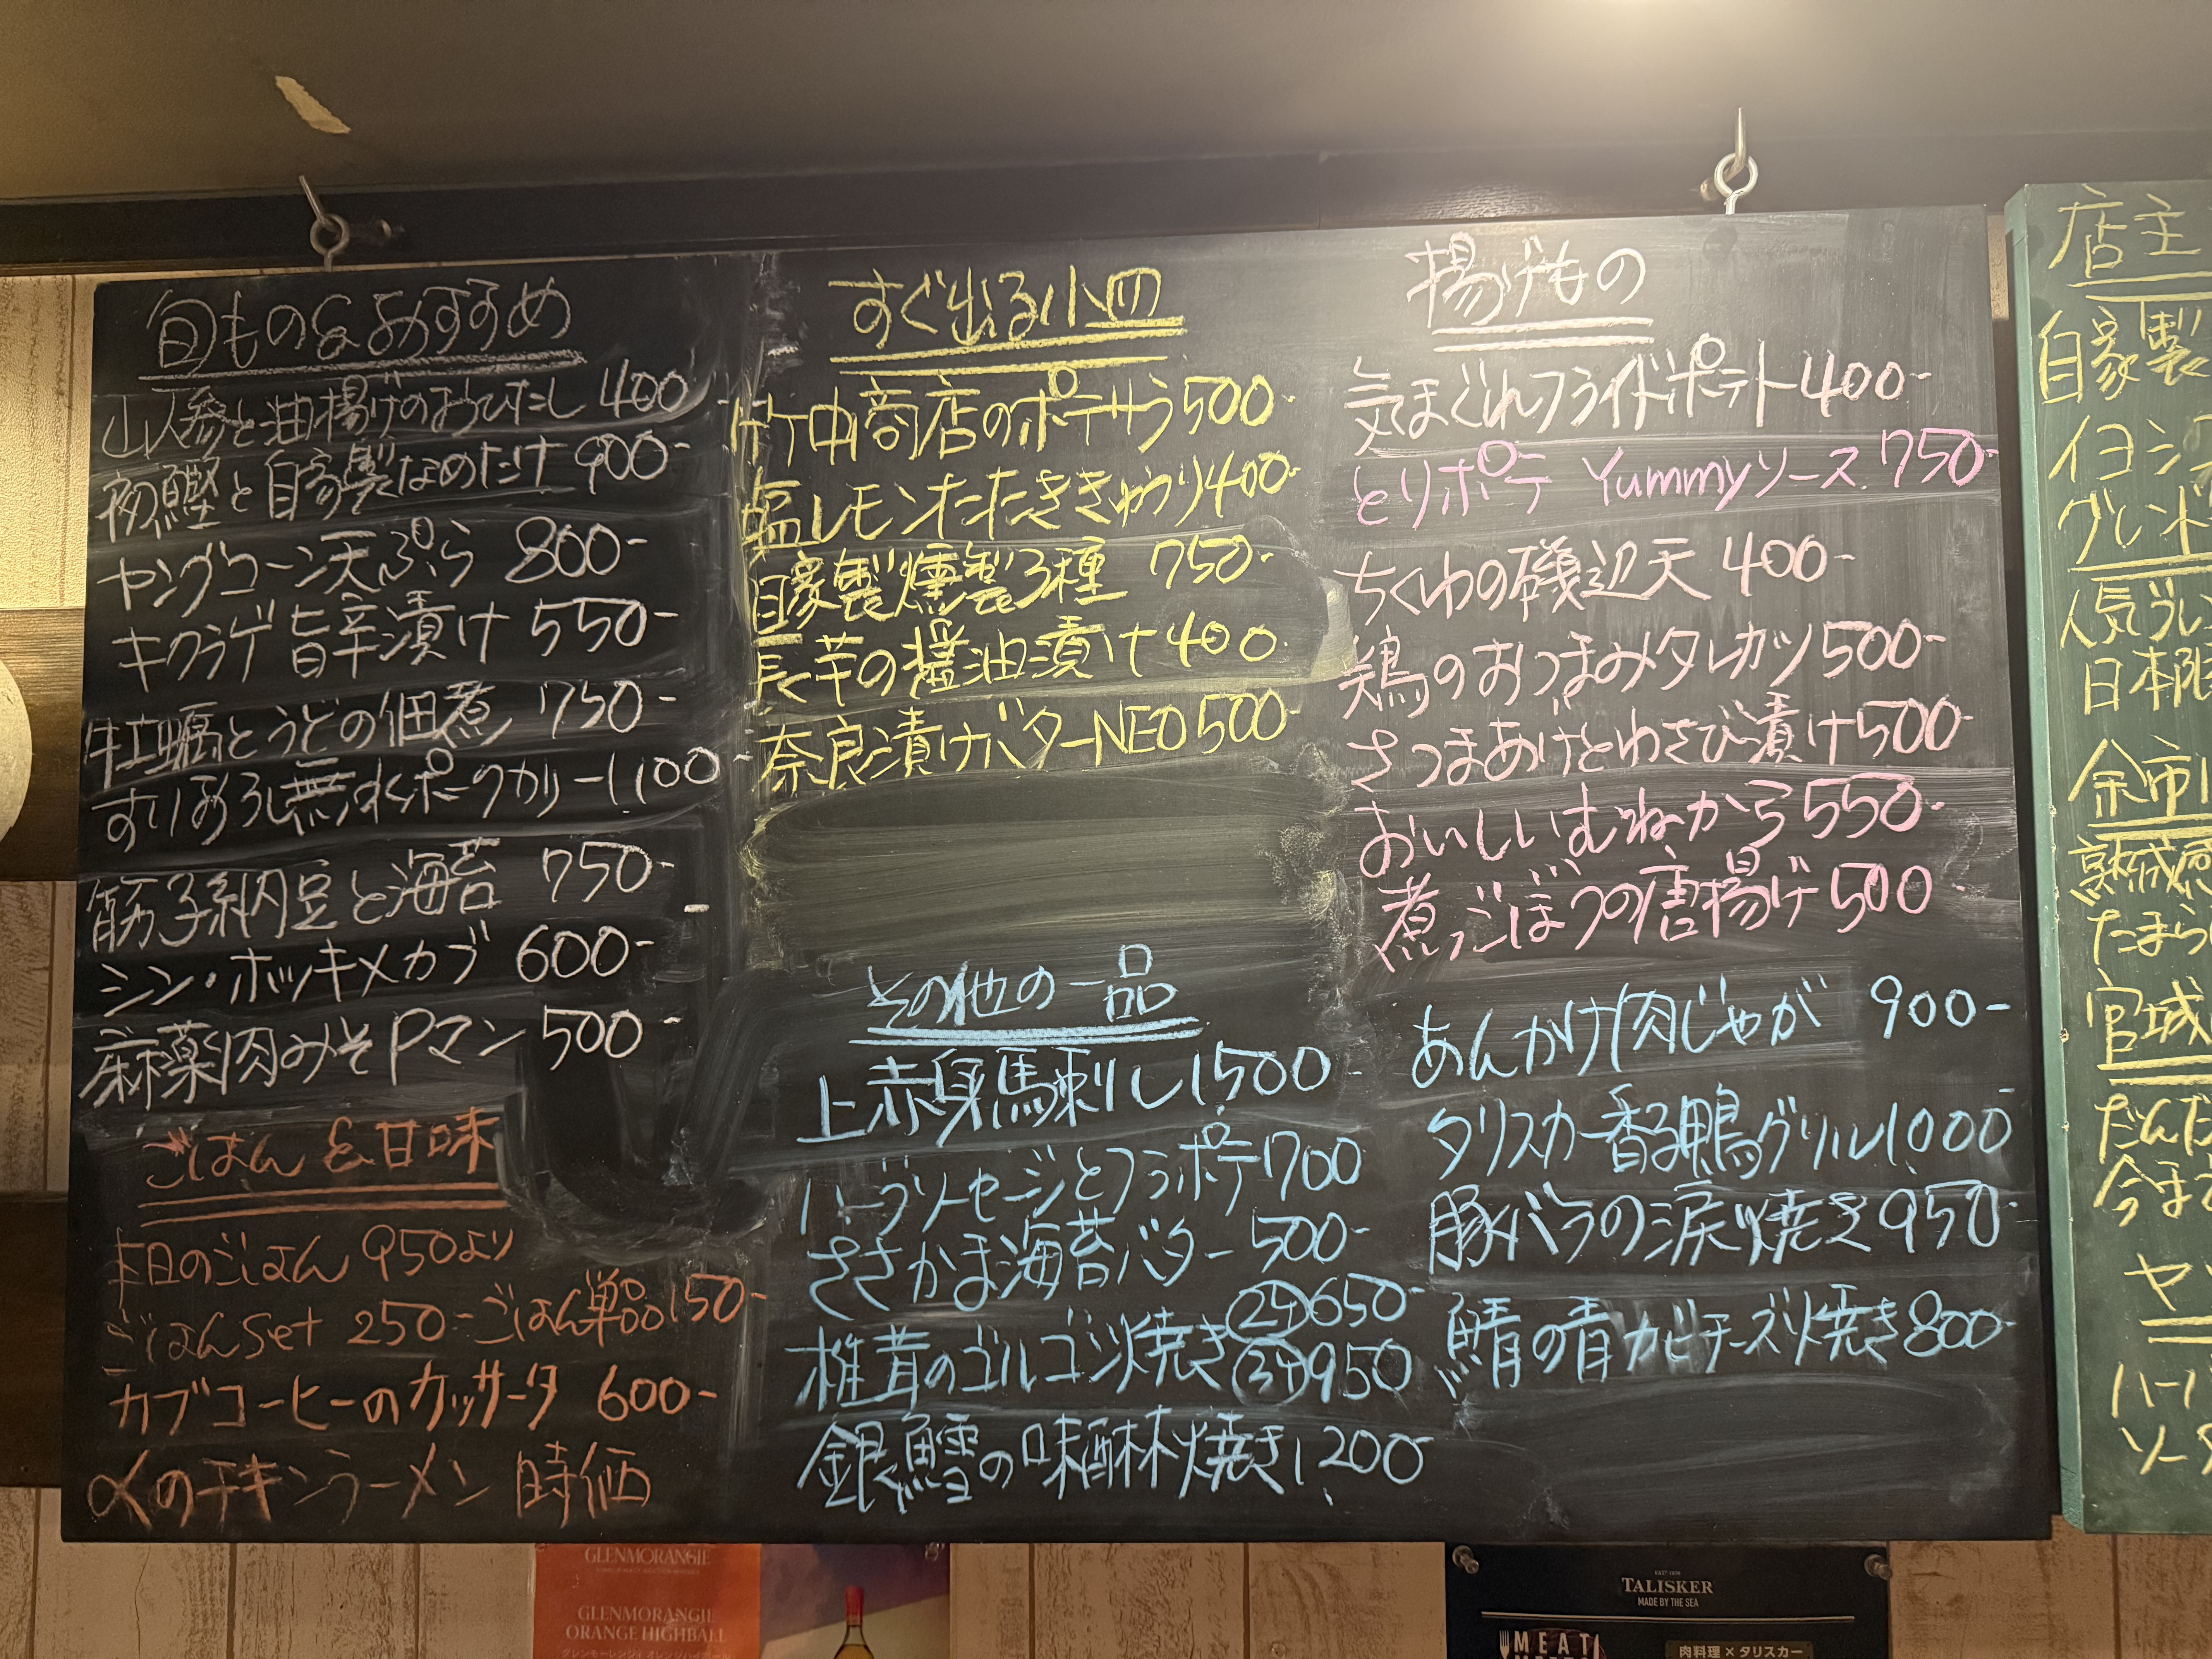 旬もの&おすすめ
山人参と油揚げのおひたし 400
初鰹と自家製なめたけ 900-
ヤングコーン天ぷら 800-
キクラゲ旨辛漬け 550-
牡蠣とうどの佃煮 750-
すりおろし無水ポークカリー 1,100-
筋子納豆と海苔 750-
シン・ホッキメカブ 600-
麻薬肉みそPマン 500-
ごはん&甘味
本日のごはん 950より
ごはんSet 250- ごはん単品 150-
カブコーヒーのカッサータ 600-
〆のチキンラーメン 時価
すぐ出る小皿
竹中商店のポテサラ 500-
塩レモンたたききゅうり 400-
自家製燻製3種 750-
長芋の醤油漬け 400-
奈良漬けバターNEO 500-
その他の一品
上赤身馬刺し 1,500-
ハーブソーセージとフラポテ 700
ささかま海苔バター 500-
椎茸のゴルゴンゾ焼き 2ケ 650-
3ケ 950
銀鱈の味醂焼き 1,200-
揚げもの
気まぐれフライドポテト 400-
とりポテ Yummyソース 750-
ちくわの磯辺天 400-
鶏のおつまみタレカツ 500-
さつまあげとわさび漬け 500-
おいしいむねから 550-
煮ごぼうの唐揚げ 500-
あんかけ肉じゃが 900-
タリスカー香る鴨グリル 1,000
豚バラの涙焼き 950-
鯖の青カビチーズ焼き 800-
店主
自家製
イヨシ
グレンド
人気
日本限
余市
熟成
たまら
宮城
だんだ
今ま
ヤ
ハー
ソー
GLENMORANGIE
GLENMORANGIE
ORANGE HIGHBALL
TALISKER
MADE BY THE SEA
MEAT
肉料理×タリスカー